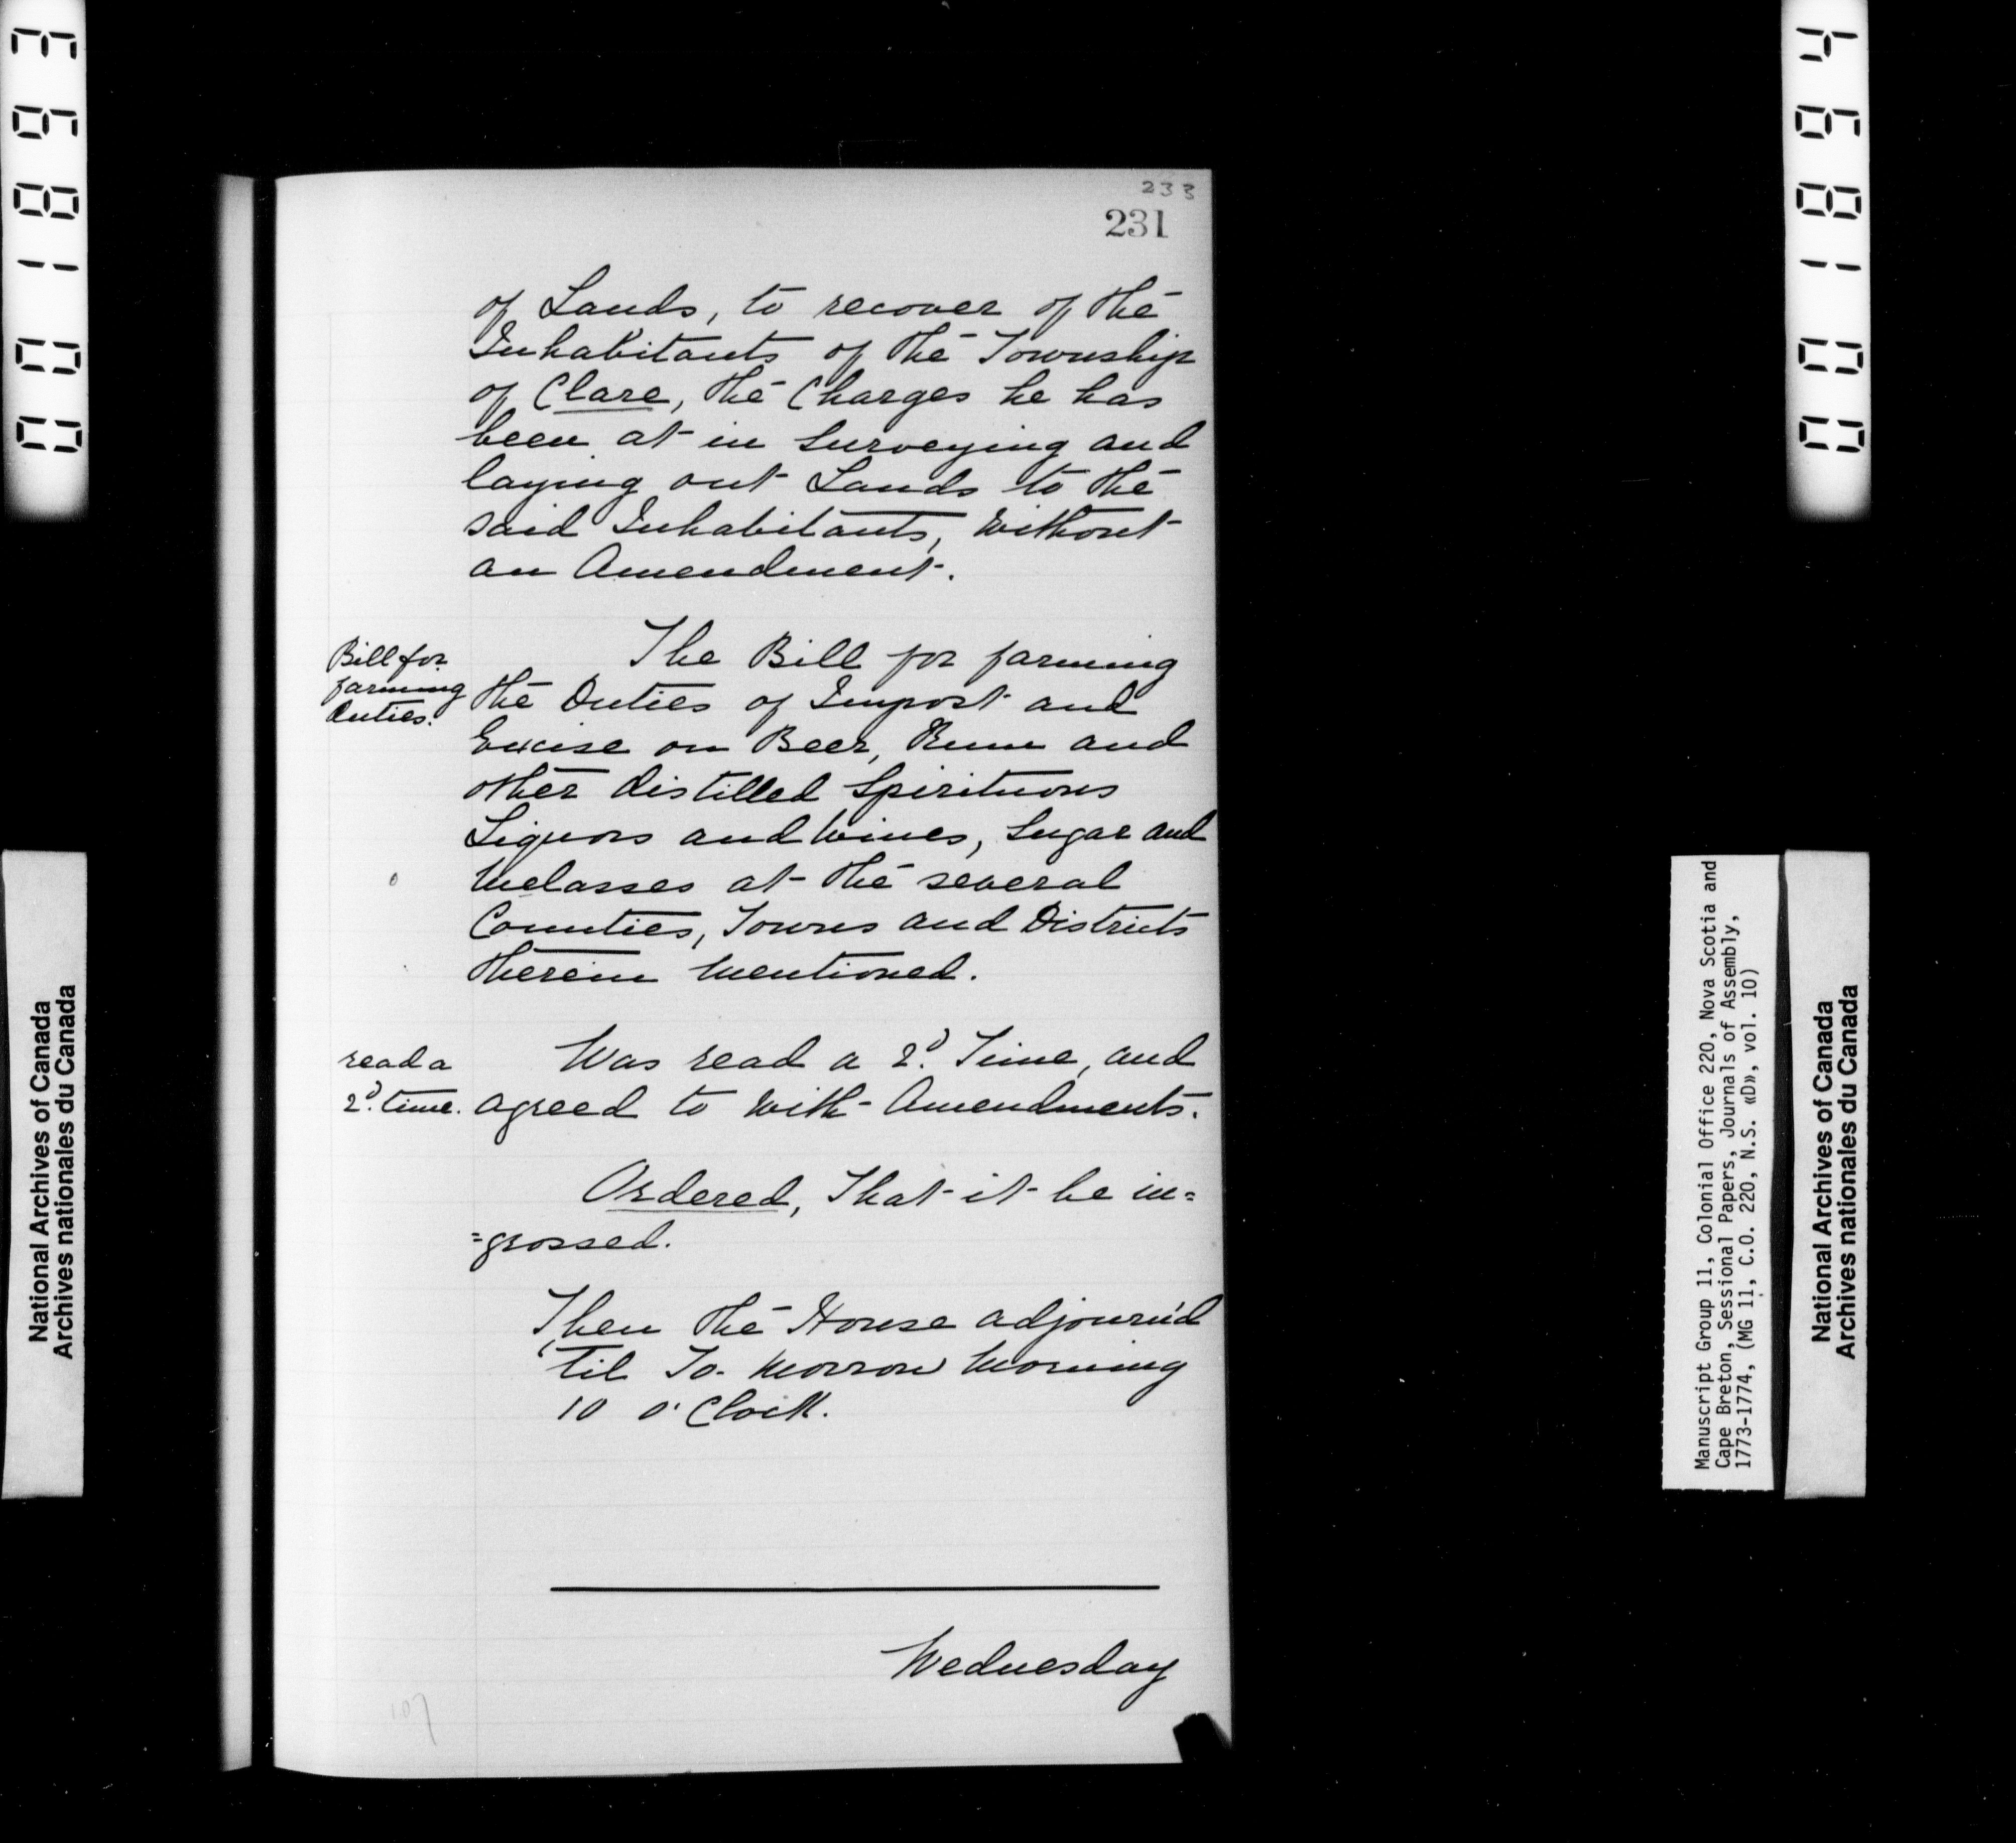 233
231
of Lands, to recover of the
Inhabitants of the Township
of Clare, the Charges he has
been at in Surveying and
laying out Lands to the
said Inhabitants, without
an Amendment.
Bill for
farming
duties.
The Bill for farming
the Duties of Impost and
Excise on Beer, Rum and
other distilled Spirituous
Liquors and Wines, Sugar and
Melasses at the several
Counties, Towns and Districts
therein mentioned.
read a
2d. time.
Was read a 2d. Time, and
agreed to with Amendments.
Ordered, That it be in=
=grossed.
Then the House adjourn'd
'til To-morrow Morning
10 O'Clock.
Wednesday
107
001893
National Archives of Canada
Archives nationales du Canada
001894
Manuscript Group 11, Colonial Office 220, Nova Scotia and
Cape Breton, Sessional Papers, Journals of Assembly,
1773-1774. (MG 11, C.O. 220, N.S. «D», vol. 10)
National Archives of Canada
Archives nationales du Canada